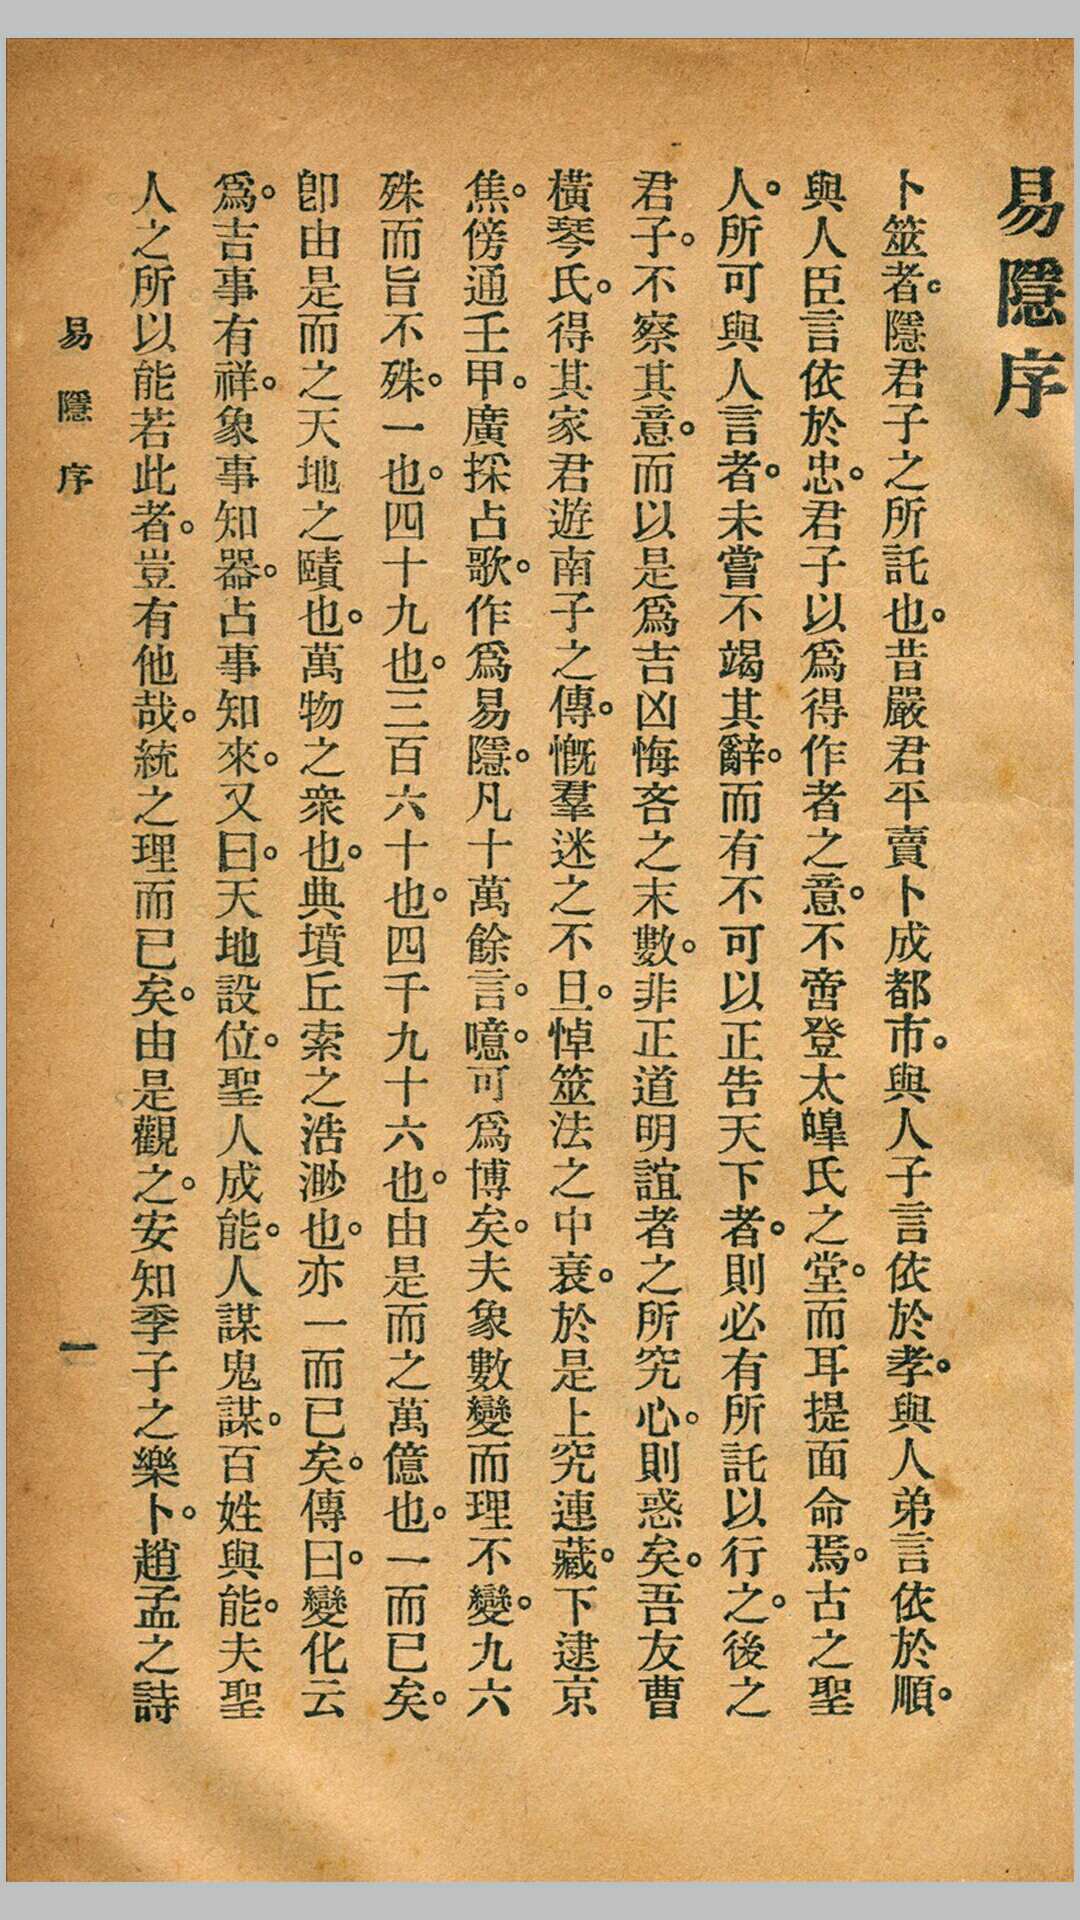 易隱序
卜筮者。隱君子之所託也。昔嚴君平賣卜成都市。與人子言依於孝。與人弟言依於順。
與人臣言依於忠。君子以爲得作者之意。不啻登太皥氏之堂。而耳提面命焉。古之聖
人。所可與人言者。未嘗不竭其辭。而有不可以正告天下者。則必有所託以行之。後之
君子。不察其意。而以是爲吉凶悔吝之末數。非正道明誼者之所究心。則惑矣。吾友曹
橫琴氏。得其家君遊南子之傳。慨羣迷之不旦。悼筮法之中衰。於是上究連藏。下逮京
焦。傍通壬甲。廣採占歌。作爲易隱。凡十萬餘言。噫。可爲博矣。夫象數變而理不變。九六
殊而旨不殊。一也。四十九也。三百六十也。四千九十六也。由是而之萬億也。一而已矣。
卽由是而之天地之賾也。萬物之衆也。典墳丘索之浩渺也。亦一而已矣。傳曰。變化云
爲。吉事有祥。象事知器。占事知來。又曰。天地設位。聖人成能。人謀鬼謀。百姓與能。夫聖
人之所以能若此者。豈有他哉。統之理而已矣。由是觀之。安知季子之樂卜。趙孟之詩
易隱序
一